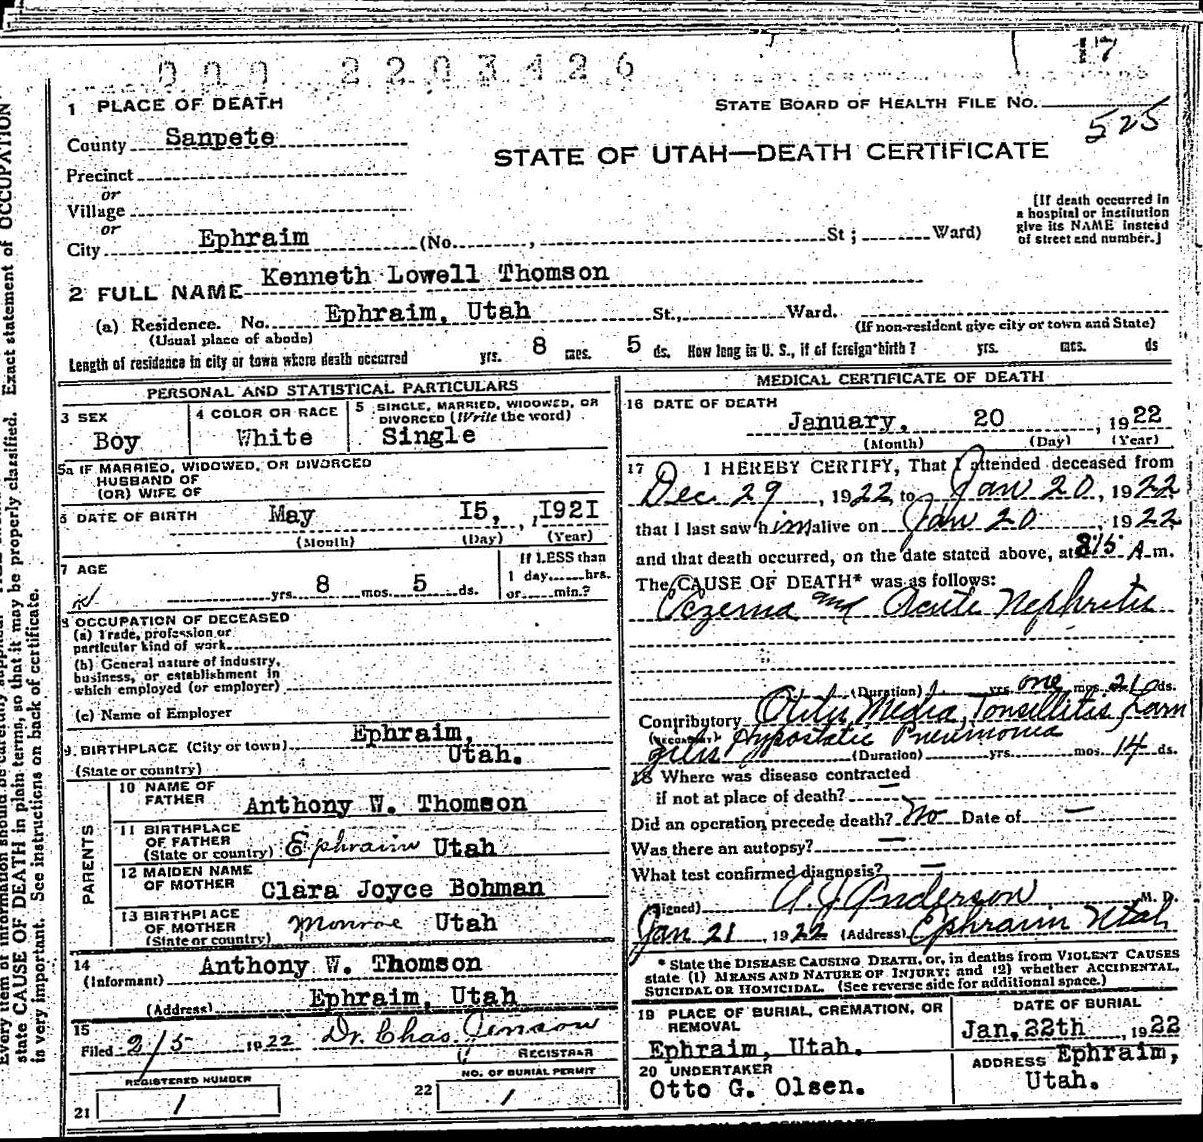 000 2203426
17
1 PLACE OF DEATH
STATE BOARD OF HEALTH FILE NO.
525
County Sanpete
STATE OF UTAH—DEATH CERTIFICATE
Precinct
or
Village
or
City Ephraim (No. , St ; Ward)
[If death occurred in
a hospital or institution
give its NAME instead
of street and number.]
2 FULL NAME Kenneth Lowell Thomson
(a) Residence. No. Ephraim, Utah St., Ward.
(Usual place of abode) (If non-resident give city or town and State)
Length of residence in city or town where death occurred yrs. 8 mos. 5 ds. How long in U. S., if of foreign birth ? yrs. mos. ds
PERSONAL AND STATISTICAL PARTICULARS
3 SEX
Boy
4 COLOR OR RACE
White
5 SINGLE, MARRIED, WIDOWED, OR
DIVORCED (Write the word)
Single
5a IF MARRIED, WIDOWED, OR DIVORCED
HUSBAND OF
(OR) WIFE OF
6 DATE OF BIRTH May I5, , I92I
(Month) (Day) (Year)
7 AGE
yrs. 8 mos. 5 ds.
If LESS than
1 day......hrs.
or......min.?
8 OCCUPATION OF DECEASED
(a) Trade, profession or
particular kind of work
(b) General nature of industry,
business, or establishment in
which employed (or employer)
(c) Name of Employer
9. BIRTHPLACE (City or town) Ephraim,
(State or country) Utah.
PARENTS
10 NAME OF
FATHER Anthony W. Thomson
11 BIRTHPLACE
OF FATHER
(State or country) Ephraim Utah
12 MAIDEN NAME
OF MOTHER Clara Joyce Bohman
13 BIRTHPLACE
OF MOTHER
(State or country) Monroe Utah
14
(Informant) Anthony W. Thomson
(Address) Ephraim, Utah
15
Filed 2/5 1922 Dr. Chas. Jenson
REGISTRAR
REGISTERED NUMBER
21 1
NO. OF BURIAL PERMIT
22 1
MEDICAL CERTIFICATE OF DEATH
16 DATE OF DEATH
January, 20 , 1922
(Month) (Day) (Year)
17 I HEREBY CERTIFY, That I attended deceased from
Dec. 29 , 1922 to Jan 20 , 1922
that I last saw him alive on Jan 20 , 1922
and that death occurred, on the date stated above, at 8:15 A m.
The CAUSE OF DEATH* was as follows:
Eczema and Acute Nephretis
(Duration) yrs. one mos. 21 ds.
Contributory Otitis Media, Tonsellitas, Larn
(SECONDARY) gitis Hypostatic Pneumonia
(Duration) yrs. mos. 14 ds.
18 Where was disease contracted
if not at place of death? —
Did an operation precede death? No Date of —
Was there an autopsy? —
What test confirmed diagnosis? —
(Signed) A. J. Anderson M. D.
Jan 21 , 1922 (Address) Ephraim Utah
* State the DISEASE CAUSING DEATH, or, in deaths from VIOLENT CAUSES
state (1) MEANS AND NATURE OF INJURY; and (2) whether ACCIDENTAL,
SUICIDAL OR HOMICIDAL. (See reverse side for additional space.)
19 PLACE OF BURIAL, CREMATION, OR
REMOVAL
Ephraim, Utah.
DATE OF BURIAL
Jan. 22th 1922
20 UNDERTAKER
Otto G. Olsen.
ADDRESS Ephraim,
Utah.
state CAUSE OF DEATH in plain terms, so that it may be properly classified. Exact statement of OCCUPATION
is very important. See instructions on back of certificate.